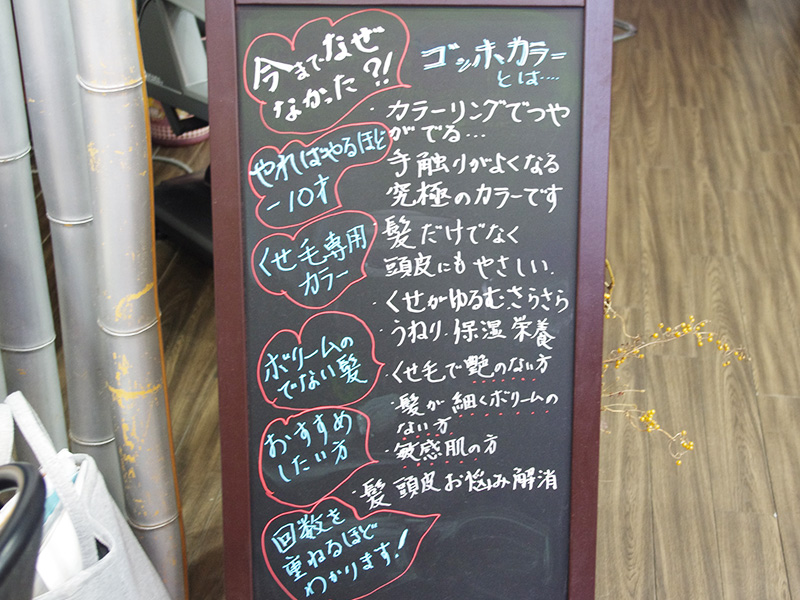 今までなぜ
なかった?!
ゴッホカラー
とは…
やればやるほど
-10才
くせ毛専用
カラー
ボリームの
でない髪
おすすめ
したい方
回数を
重ねるほど
わかります!
・カラーリングでつや
がでる…
手触りがよくなる
究極のカラーです
・髪だけでなく
頭皮にもやさしい.
・くせがゆるむ,さらさら
うねり.保湿 栄養
・くせ毛で艶のない方
・髪が細くボリームの
ない方
・敏感肌の方
・髪 頭皮お悩み解消